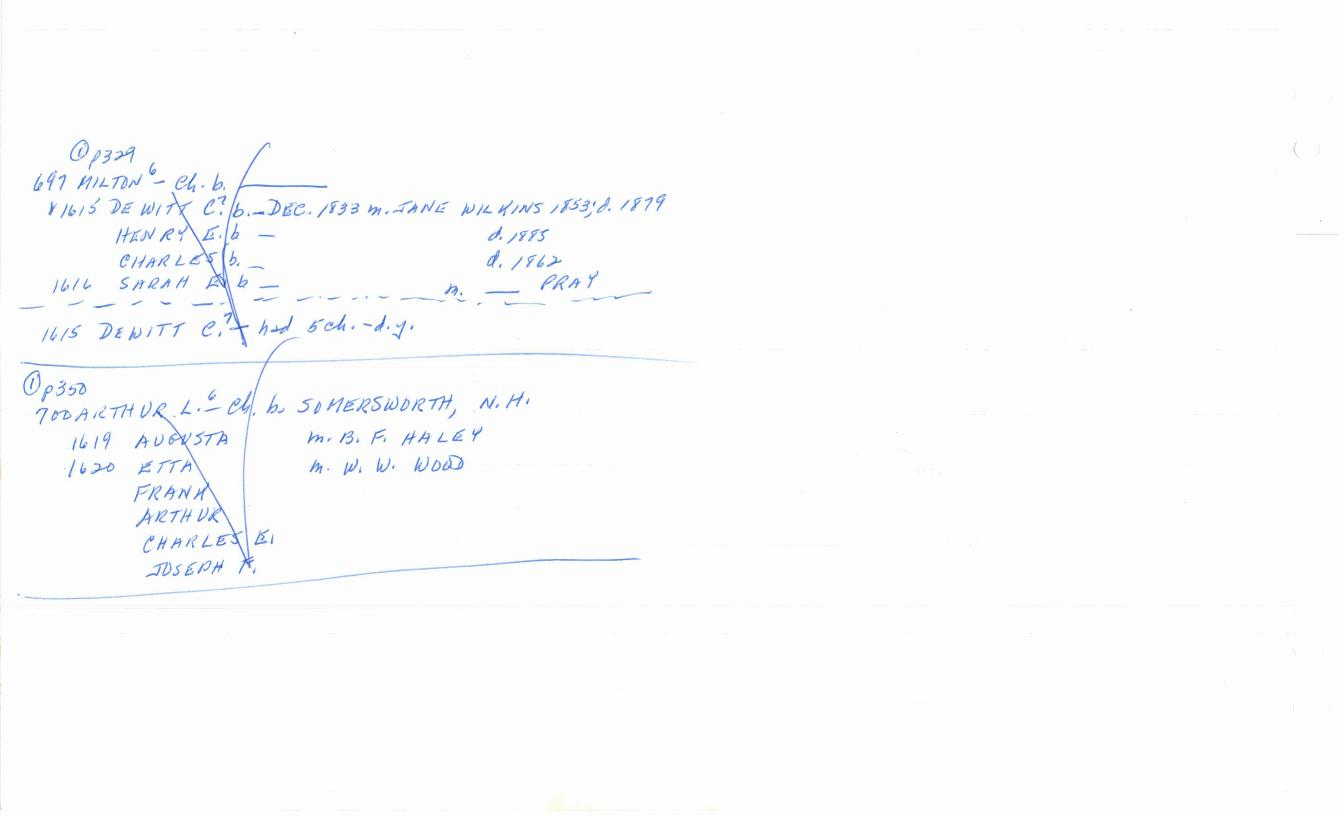 ① p329
697 MILTON⁶ – Ch. b. ______
X 1615 DE WITT C.⁷ b. – DEC. 1833 m. JANE WILKINS 1853; d. 1879
HENRY E. b – d. 1885
CHARLES b. – d. 1862
1616 SARAH E. b – m. ___ PRAY
1615 DEWITT C.⁷ – had 5 ch. – d.y.
① p350
700 ARTHUR L.⁶ – Ch. b. SOMERSWORTH, N.H.
1619 AUGUSTA m. B. F. HALEY
1620 ETTA m. W. W. WOOD
FRANK
ARTHUR
CHARLES E.
JOSEPH F.